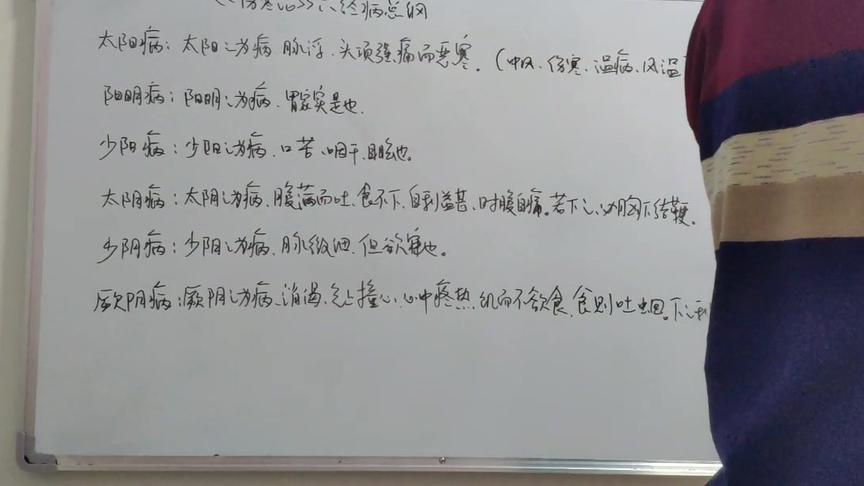 《伤寒论》六经病总纲
太阳病：太阳之为病 脉浮、头项强痛而恶寒。（中风、伤寒、温病、风温
阳明病：阳明之为病、胃家实是也.
少阳病：少阳之为病、口苦、咽干、目眩也。
太阴病：太阴之为病、腹满而吐、食不下、自利益甚、时腹自痛。若下之、必胸下结鞕.
少阴病：少阴之为病、脉微细、但欲寐也。
厥阴病：厥阴之为病、消渴、气上撞心、心中疼热、饥而不欲食、食则吐蛔。下之利